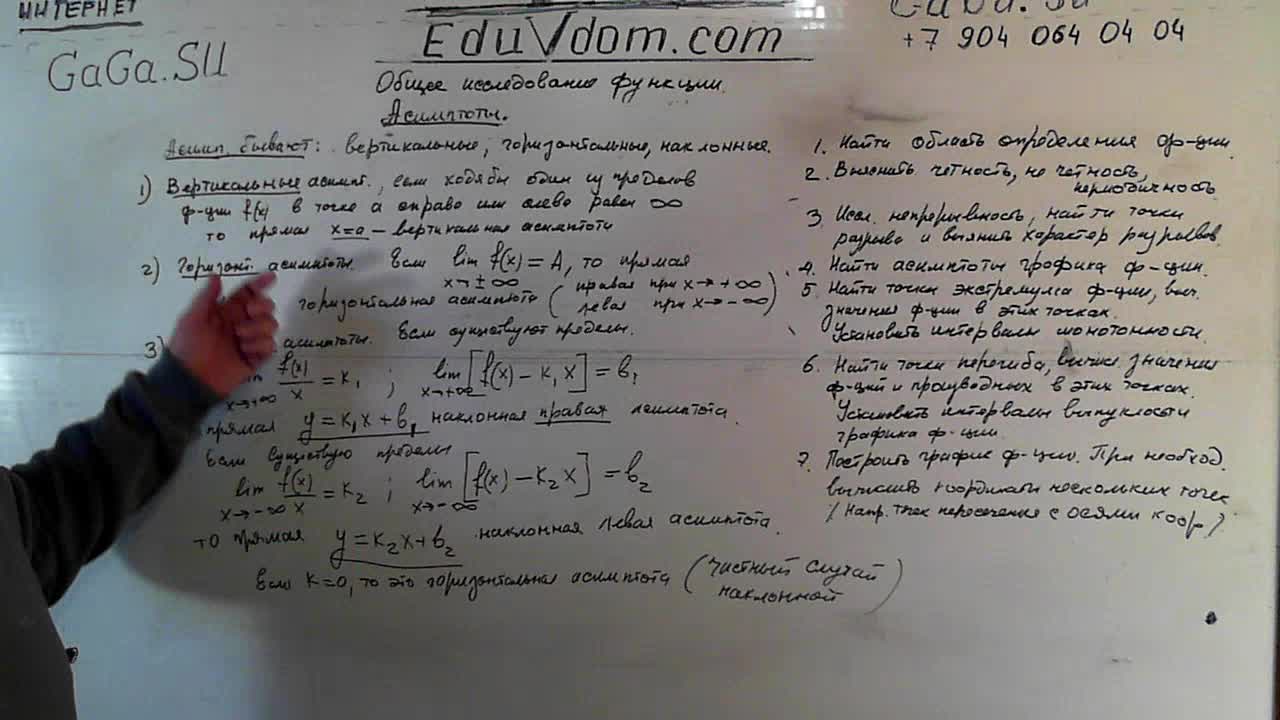 ИНТЕРНЕТ
GaGa.SU
EduVdom.com
GaGa.Su
+7 904 064 04 04
Общее исследование функции.
Асимптоты.
Асимп. бывают: вертикальные, горизонтальные, наклонные.
1) Вертикальные асимпт., если хотябы один из пределов
ф-ции f(x) в точке a справо или слево равен ∞
то прямая x=a – вертикальная асимптота
2) Горизонт. асимптоты. Если lim f(x) = A, то прямая
x→±∞
горизонтальная асимптота (правая при x→+∞
левая при x→-∞)
3) асимптоты. Если существуют пределы.
lim f(x)/x = K₁ ; lim [f(x) – K₁x] = b₁
x→+∞ x→+∞
прямая y=K₁x+b₁ наклонная правая асимптота.
Если существую пределы
lim f(x)/x = K₂ ; lim [f(x) – K₂x] = b₂
x→-∞ x→-∞
то прямая y=K₂x+b₂ наклонная левая асимптота.
Если K=0, то это горизонтальная асимптота (частный случай
наклонной)
1. Найти область определения ф-ции.
2. Выяснить четность, не четность,
периодичность
3. Иссл. непрерывность, найти точки
разрыва и выянить характер разрывов.
4. Найти асимптоты графика ф-ции.
5. Найти точки экстремума ф-ции, выч.
значения ф-ции в этих точках.
Установить интервалы монотонности.
6. Найти точки перегиба, вычисл значения
ф-ций и производных в этих точках.
Установить интервалы выпуклости
графика ф-ции.
7. Построить график ф-цию. При необход.
вычислить координаты нескольких точек
(Напр. точек пересечения с осями коор.)